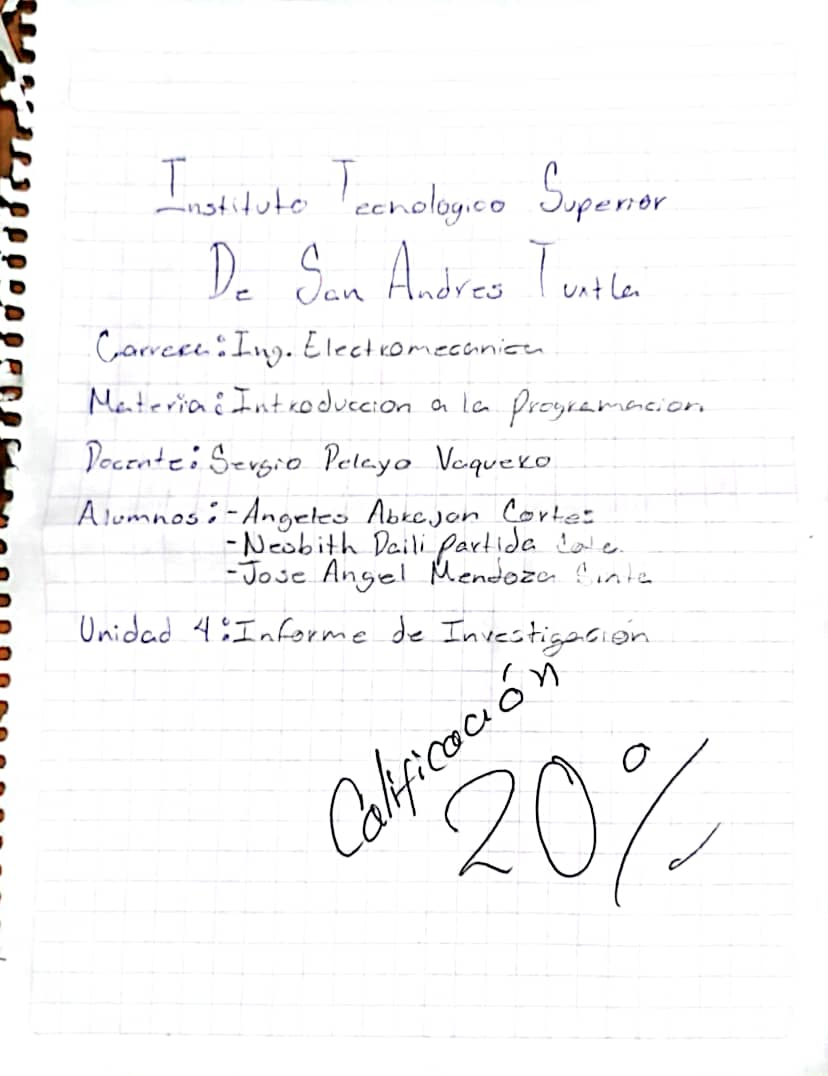 Instituto Tecnologico Superior
De San Andres Tuxtla
Carrera: Ing. Electromecanica
Materia: Introduccion a la Programacion.
Docente: Sergio Pelayo Vaquero
Alumnos: -Angeles Abrajan Cortes
-Nesbith Daili Partida
-Jose Angel Mendoza
Unidad 4: Informe de Investigasion
Calificación
20%